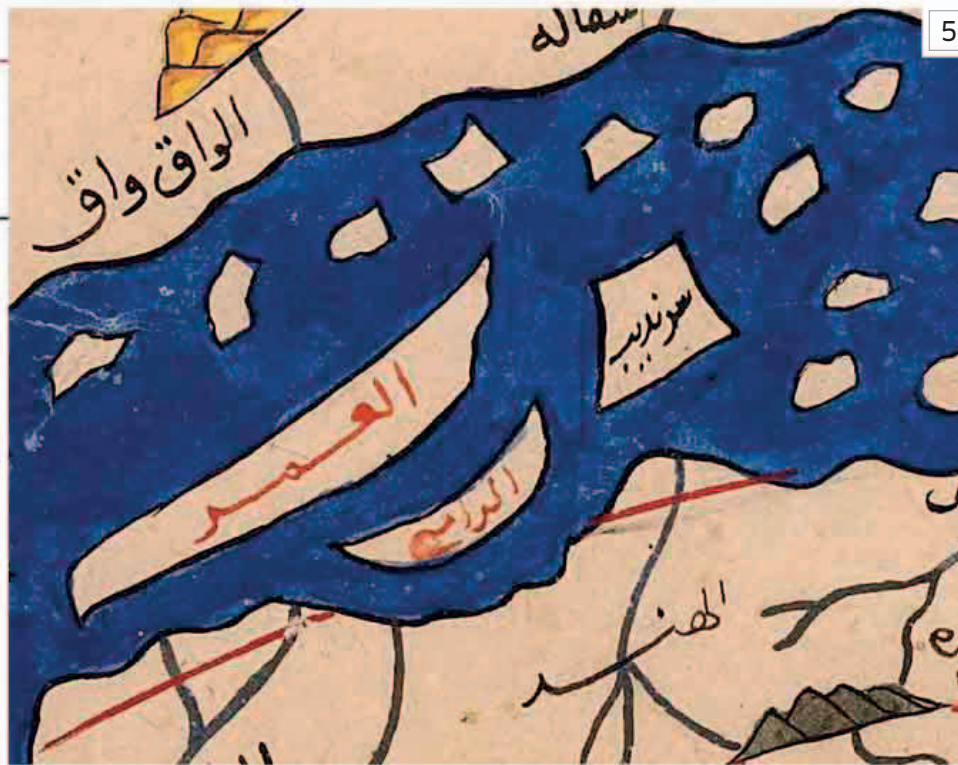 5
سفاله
الواق واق
سرنديب
القمر
الرامي
الهند